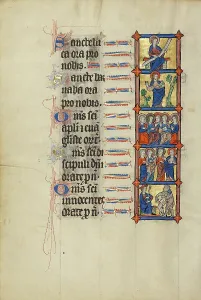 Sancte lu
ca ora pro
nobis.
Sancte bar
naba ora
pro nobis.
Omnes sci
apli et eua
gliste orate
Omnes sci di
scipuli dni
orate p n.
Omnes sci
innocentes
orate p n.